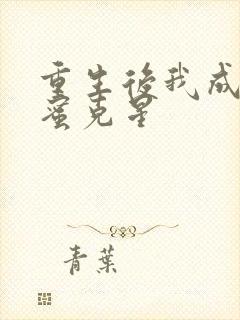 重生後我成
蜜克星
青葉